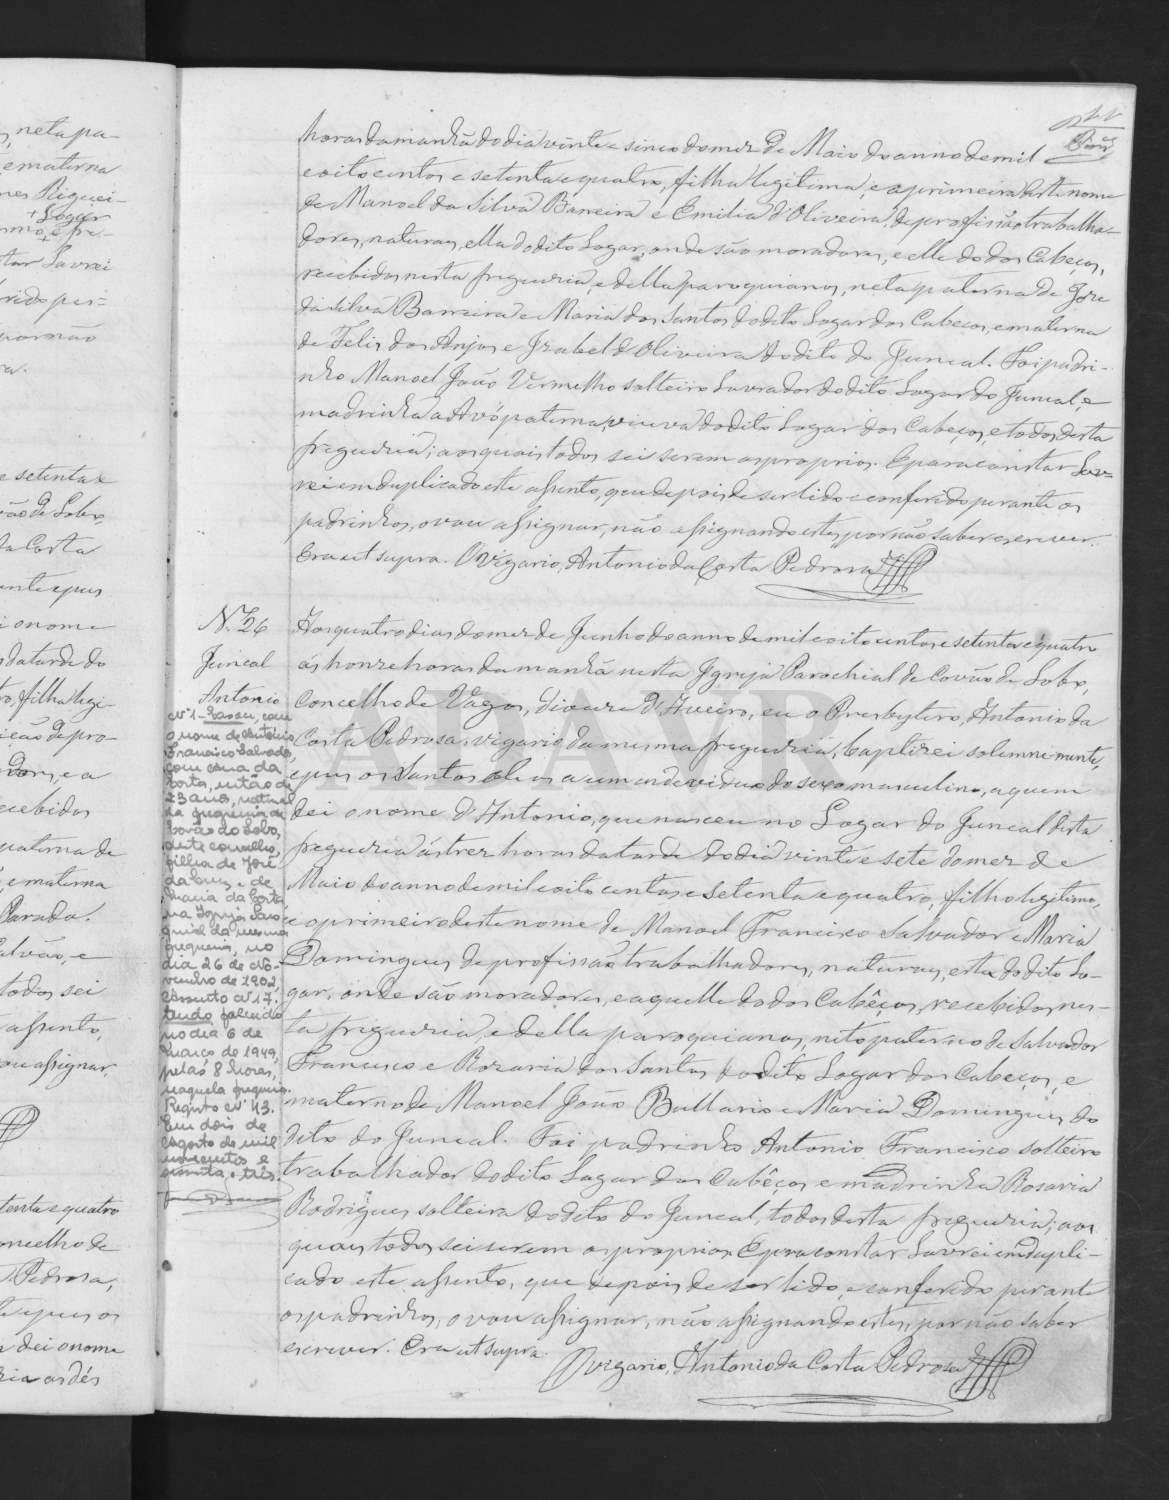 horas da manhã do dia vinte e sinco do mez de Maio do anno de mil
e oito centos e setenta e quatro, filha legitima, e a primeira deste nome
de Manoel da Silva Barreira e Emilia d'Oliveira, de profissão trabalha-
dores, naturaes, ella do dito Logar, onde são moradores, e elle do dos Cabeços,
recebidos nesta freguezia, e della paroquianos, neta paterna de Joze
da Silva Barreira e Maria dos Santos do dito Logar dos Cabeços, e materna
de Felis dos Anjos e Izabel d'Oliveira do dito do Juncal. Foi padri-
nho Manoel João Vermelho solteiro Lavrador do dito Logar do Juncal, e
madrinha a Avó paterna, viuva do dito Logar dos Cabeços, e todos desta
freguezia; aos quais todos sei serem os proprios. E para constar Lav-
rei em duplicado este assento, que depois de ser lido e conferido perante os
padrinhos, o vou assignar, não assignando estes, por não saber escrever.
Era ut supra. O Vigario, Antonio da Costa Pedrosa
N.º 26
Juncal
Antonio
Nº 1 - Casou, com
o nome de António
Francisco Salvador,
com
Costa, então de
23 anos, natural
da freguesia de
Covão do Lobo,
deste concelho,
filha de José
da Cruz e de
Maria da Costa,
na Igreja Paro
quial da mesma
freguesia, no
dia 26 de No-
vembro de 1902,
assento nº 17.
Tendo falecido
no dia 6 de
Março de 1949,
pelas 8 horas,
naquela freguesia.
Registo nº 43.
Em dois de
Agosto de mil
novecentos e
e três.
Aos quatro dias do mez de Junho do anno de mil e oito centos e setenta e quatro
ás honze horas da manhã nesta Igreja Parochial de Covão do Lobo,
Concelho de Vagos, diocese d'Aveiro, eu o Presbytero, Antonio da
Costa Pedrosa, vigario da mesma freguezia, baptizei solemnemente,
e pus os Santos oleos a um individuo do sexo masculino, a quem
dei o nome d'Antonio, que nasceu no Logar do Juncal desta
freguezia ás trez horas da tarde do dia vinte e sete do mez de
Maio do anno de mil e oito centos e setenta e quatro, filho legitimo,
e o primeiro deste nome de Manoel Francisco Salvador e Maria
Domingues, de profissão trabalhadores, naturaes, esta do dito Lo-
gar, onde são moradores, e aquelle do dos Cabêços, recebidos nes-
ta freguezia, e della paroquianos, neto paterno de Salvador
Francisco e Rozaria dos Santos do dito Logar dos Cabeços, e
materno de Manoel João Bullario e Maria Domingues do
dito do Juncal. Foi padrinho Antonio Francisco solteiro
trabalhador do dito Logar dos Cabêços e madrinha Rosaria
Rodrigues solteira do dito do Juncal, todos desta freguezia; aos
quais todos sei serem os proprios. E para constar Lavrei em dupli-
cado este assento, que depois de ser lido, e conferido perante
os padrinhos, o vou assignar, não assignando estes, por não saber
escrever. Era ut supra.
O vigario, Antonio da Costa Pedrosa
ADAVR